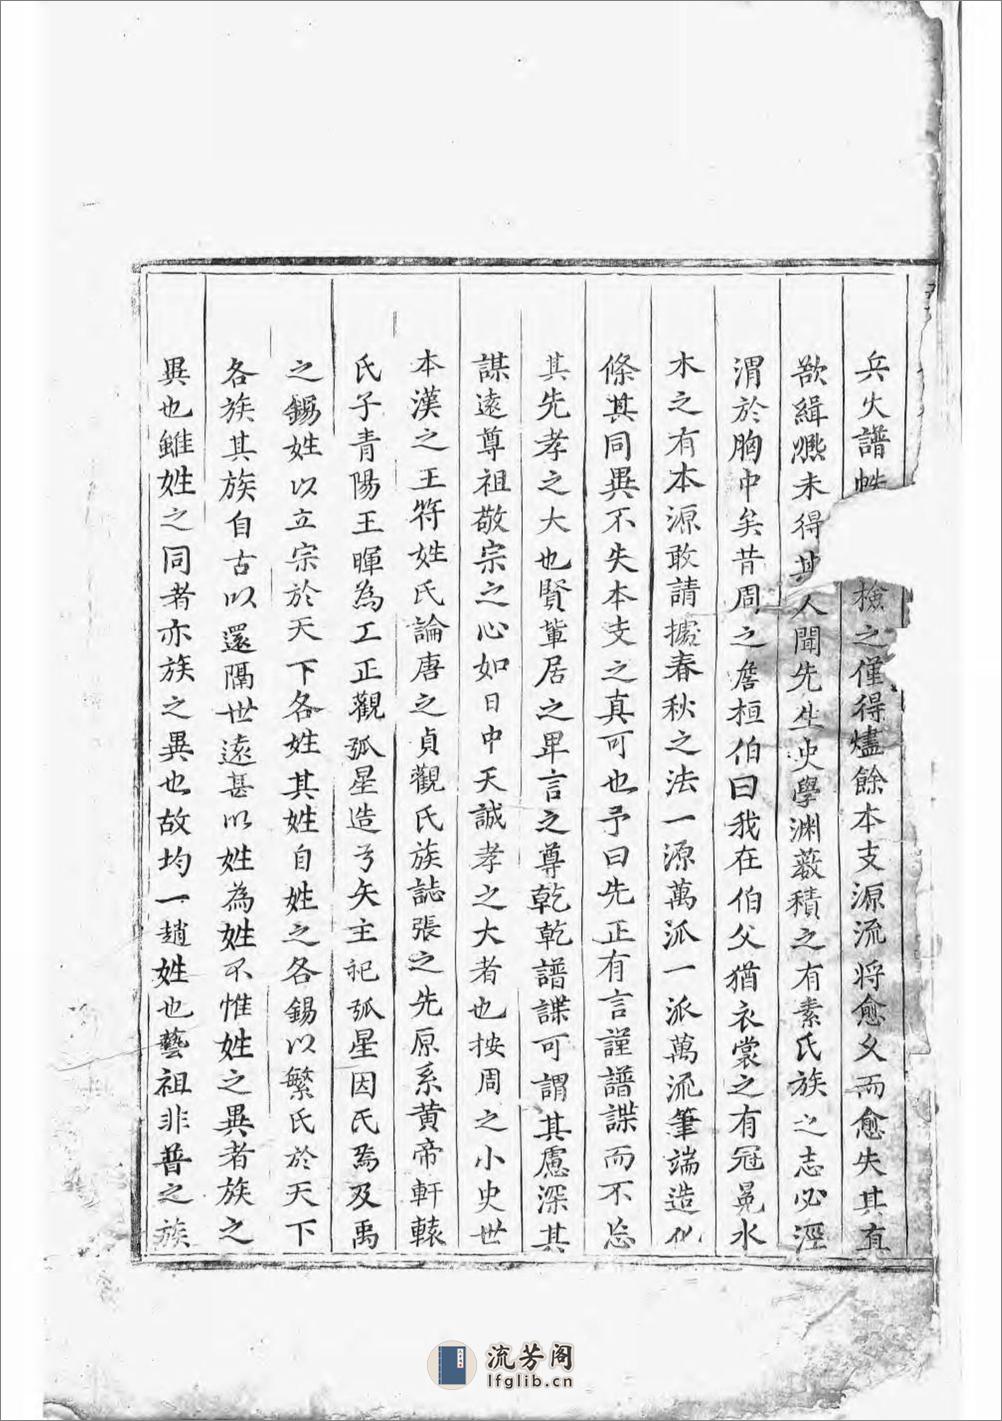 兵火譜
檢之僅得燼餘本支源流将愈乆而愈失其真
欲緝熈未得其人聞先生史學渊薮積之有素氏族之志必涇
渭於胸中矣昔周之詹桓伯曰我在伯父猶衣裳之有冠冕水
木之有本源敢請據春秋之法一源萬派一派萬流筆端造化
條其同異不失本支之真可也予曰先正有言謹譜諜而不忘
其先孝之大也賢軰居之卑言之尊乾乾譜諜可謂其慮深其
謀遠尊祖敬宗之心如日中天誠孝之大者也按周之小史世
本漢之王符姓氏論唐之貞觀氏族誌張之先原系黄帝軒轅
氏子青陽王暉為工正觀弧星造弓矢主祀弧星因氏焉及禹
之錫姓以立宗於天下各姓其姓自姓之各錫以繁氏於天下
各族其族自古以還隔世遠甚以姓為姓不惟姓之異者族之
異也雖姓之同者亦族之異也故均一趙姓也藝祖非普之族
流芳阁
lfglib.cn